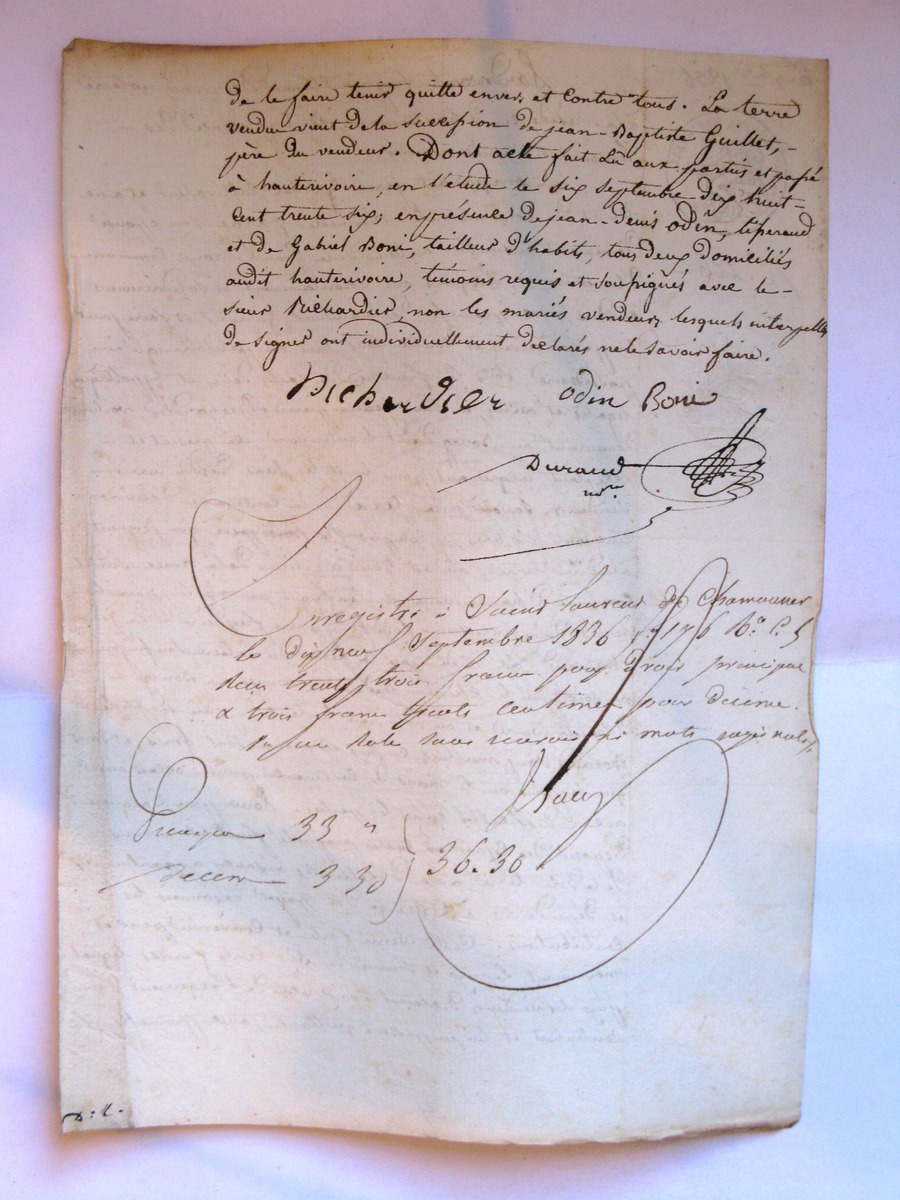 de le faire tenir quitte envers et contre tous. La terre
vendue vient de la succession de jean-Baptiste Guillet, -
père du vendeur. Dont acte fait lû aux partis et passé
à hauterivoire, en l'étude le six septembre dix huit-
cent trente six; en présence de jean-denis odin, tisseraud
et de Gabriel Boni, tailleur d'habits, tous deux domiciliés
audit hauterivoire, témoins requis et soussignés avec le-
sieur Richardier, non les mariés vendeurs lesquels interpellés
de signer ont individuellement declarés ne le savoir faire.
Richardier odin Boni
Durand
nore.
Enregistré à Saint Laurent de Chamousset
le dix neuf Septembre 1836 fo. 176 Vo. C. 5
Reçu trente trois francs pour Droit principal
& trois francs trente centimes pour decime.
sans mots rayés nuls,
Principal 33 "
Decime 3 30
36.30